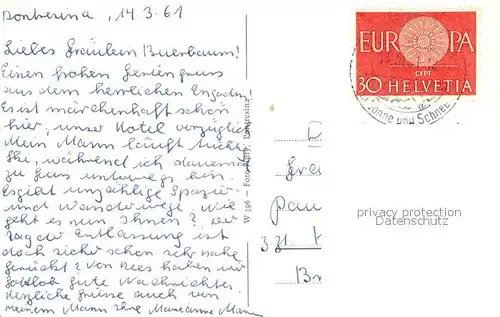 Pontresina, 14.3.61
Liebes Fräulein Buerbaum!
Einen frohen Feriengruss
aus dem herrlichen Engadin
Es ist märchenhaft schön
hier, unser Hotel vorzüglich
Mein Mann läuft tüchtig
Ski, während ich dauernd
zu Fuss unterwegs bin.
Es gibt unzählige Spazier-
und Wanderwege. Wie
geht es nun Ihnen? Der
Tag der Entlassung ist
doch sicher schon sehr nahe
gerückt? Von Rees haben wir
gottlob gute Nachrichten
Herzliche Grüsse auch von
meinem Mann Ihre Marianne Mann
W 396 - Foto Pontresina
EUROPA
CEPT
30 HELVETIA
Sonne und Schnee
privacy protection
Datenschutz